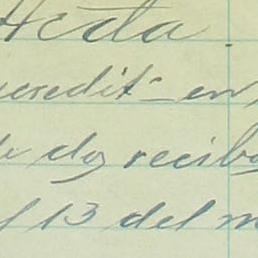 Hesta.
acredit- en
de dos recibo
el 13 del m